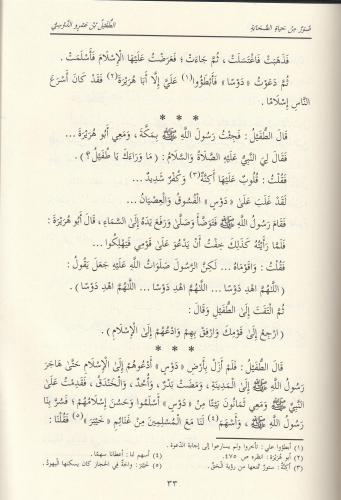 صُوَرٌ مِنْ حَيَاةِ الصَّحَابَةِ
الطُّفَيْلُ بْنُ عَمْرٍو الدَّوْسِيُّ
فَذَهَبَتْ فَاغْتَسَلَتْ ، ثُمَّ جَاءَتْ ؛ فَعَرَضْتُ عَلَيْهَا الْإِسْلَامَ فَأَسْلَمَتْ .
ثُمَّ دَعَوْتُ « دَوْسًا » فَأَبْطَؤُوا(١) عَلَيَّ إِلَّا أَبَا هُرَيْرَةَ(٢) فَقَدْ كَانَ أَسْرَعَ
النَّاسِ إِسْلَامًا .
* * *
قَالَ الطُّفَيْلُ : فَجِئْتُ رَسُولَ اللَّهِ ﷺ بِمَكَّةَ ، وَمَعِي أَبُو هُرَيْرَةَ ...
فَقَالَ لِيَ النَّبِيُّ عَلَيْهِ الصَّلَاةُ وَالسَّلَامُ : ( مَا وَرَاءَكَ يَا طُفَيْلُ ؟ ) .
فَقُلْتُ : قُلُوبٌ عَلَيْهَا أَكِنَّةٌ(٣) وَكُفْرٌ شَدِيدٌ ...
لَقَدْ غَلَبَ عَلَىٰ « دَوْسٍ » الْفُسُوقُ وَالْعِصْيَانُ ...
فَقَامَ رَسُولُ اللَّهِ ﷺ فَتَوَضَّأَ وَصَلَّىٰ وَرَفَعَ يَدَهُ إِلَىٰ السَّمَاءِ ، قَالَ أَبُو هُرَيْرَةَ :
فَلَمَّا رَأَيْتُهُ كَذَٰلِكَ خِفْتُ أَنْ يَدْعُوَ عَلَىٰ قَوْمِي فَيَهْلِكُوا ...
فَقُلْتُ : وَاقَوْمَاهُ ... لَكِنَّ الرَّسُولَ صَلَوَاتُ اللَّهِ عَلَيْهِ جَعَلَ يَقُولُ :
( اللَّهُمَّ اهْدِ دَوْسًا ... اللَّهُمَّ اهْدِ دَوْسًا ... اللَّهُمَّ اهْدِ دَوْسًا ) .
ثُمَّ الْتَفَتَ إِلَىٰ الطُّفَيْلِ وَقَالَ :
( ارْجِعْ إِلَىٰ قَوْمِكَ وَارْفِقْ بِهِمْ وَادْعُهُمْ إِلَىٰ الْإِسْلَامِ ) .
* * *
قَالَ الطُّفَيْلُ : فَلَمْ أَزَلْ بِأَرْضِ « دَوْسٍ » أَدْعُوهُمْ إِلَىٰ الْإِسْلَامِ حَتَّىٰ هَاجَرَ
رَسُولُ اللَّهِ ﷺ إِلَىٰ الْمَدِينَةِ ، وَمَضَتْ بَدْرٌ ، وَأُحُدٌ ، وَالْخَنْدَقُ ، فَقَدِمْتُ عَلَىٰ
النَّبِيِّ ﷺ وَمَعِي ثَمَانُونَ بَيْتًا مِنْ « دَوْسٍ » أَسْلَمُوا وَحَسُنَ إِسْلَامُهُمْ ؛ فَسُرَّ بِنَا
رَسُولُ اللَّهِ ﷺ ، وَأَسْهَمَ(٤) لَنَا مَعَ الْمُسْلِمِينَ مِنْ غَنَائِمِ « خَيْبَرَ »(٥) فَقُلْنَا :
(١) أبطؤوا علي : تأخروا ولم يسارعوا إلى إجابة الدعوة .
(٢) أبو هُرَيْرَة : انظره ص ٤٧٥ .
(٣) أكِنَّة : ستورٌ تمنعها من رؤية الحقّ .
(٤) أسهم لنا : أعطانا سهمًا .
(٥) خَيْبَر : واحةٌ في الحجاز كان يسكنها اليهودُ .
٣٣